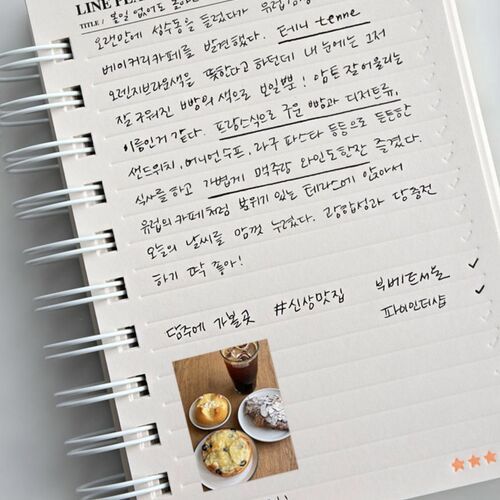 LINE PLA
TITLE / 볼일 없어도
오랜만에 성수동을 들렀다가 유럽
베이커리카페를 발견했다. 테니 tenne
오렌지브라운색을 뜻한다고 하던데 내 눈에는 그저
잘 구워진 빵빵의 색으로 보일뿐! 암튼 잘 어울리는
이름인거 같다. 프랑스식으로 구운 빵과 디저트류,
샌드위치, 어니언수프, 라구 파스타 등등으로 든든한
식사를 하고 가볍게 맥주랑 와인도 한잔 즐겼다.
유럽의 카페처럼 분위기 있는 테라스에 앉아서
오늘의 날씨를 맘껏 누렸다. 광합성과 당충전
하기 딱 좋아!
담주에 가볼곳 #신상맛집 부베트서울 ✓
파이인더샵 ✓